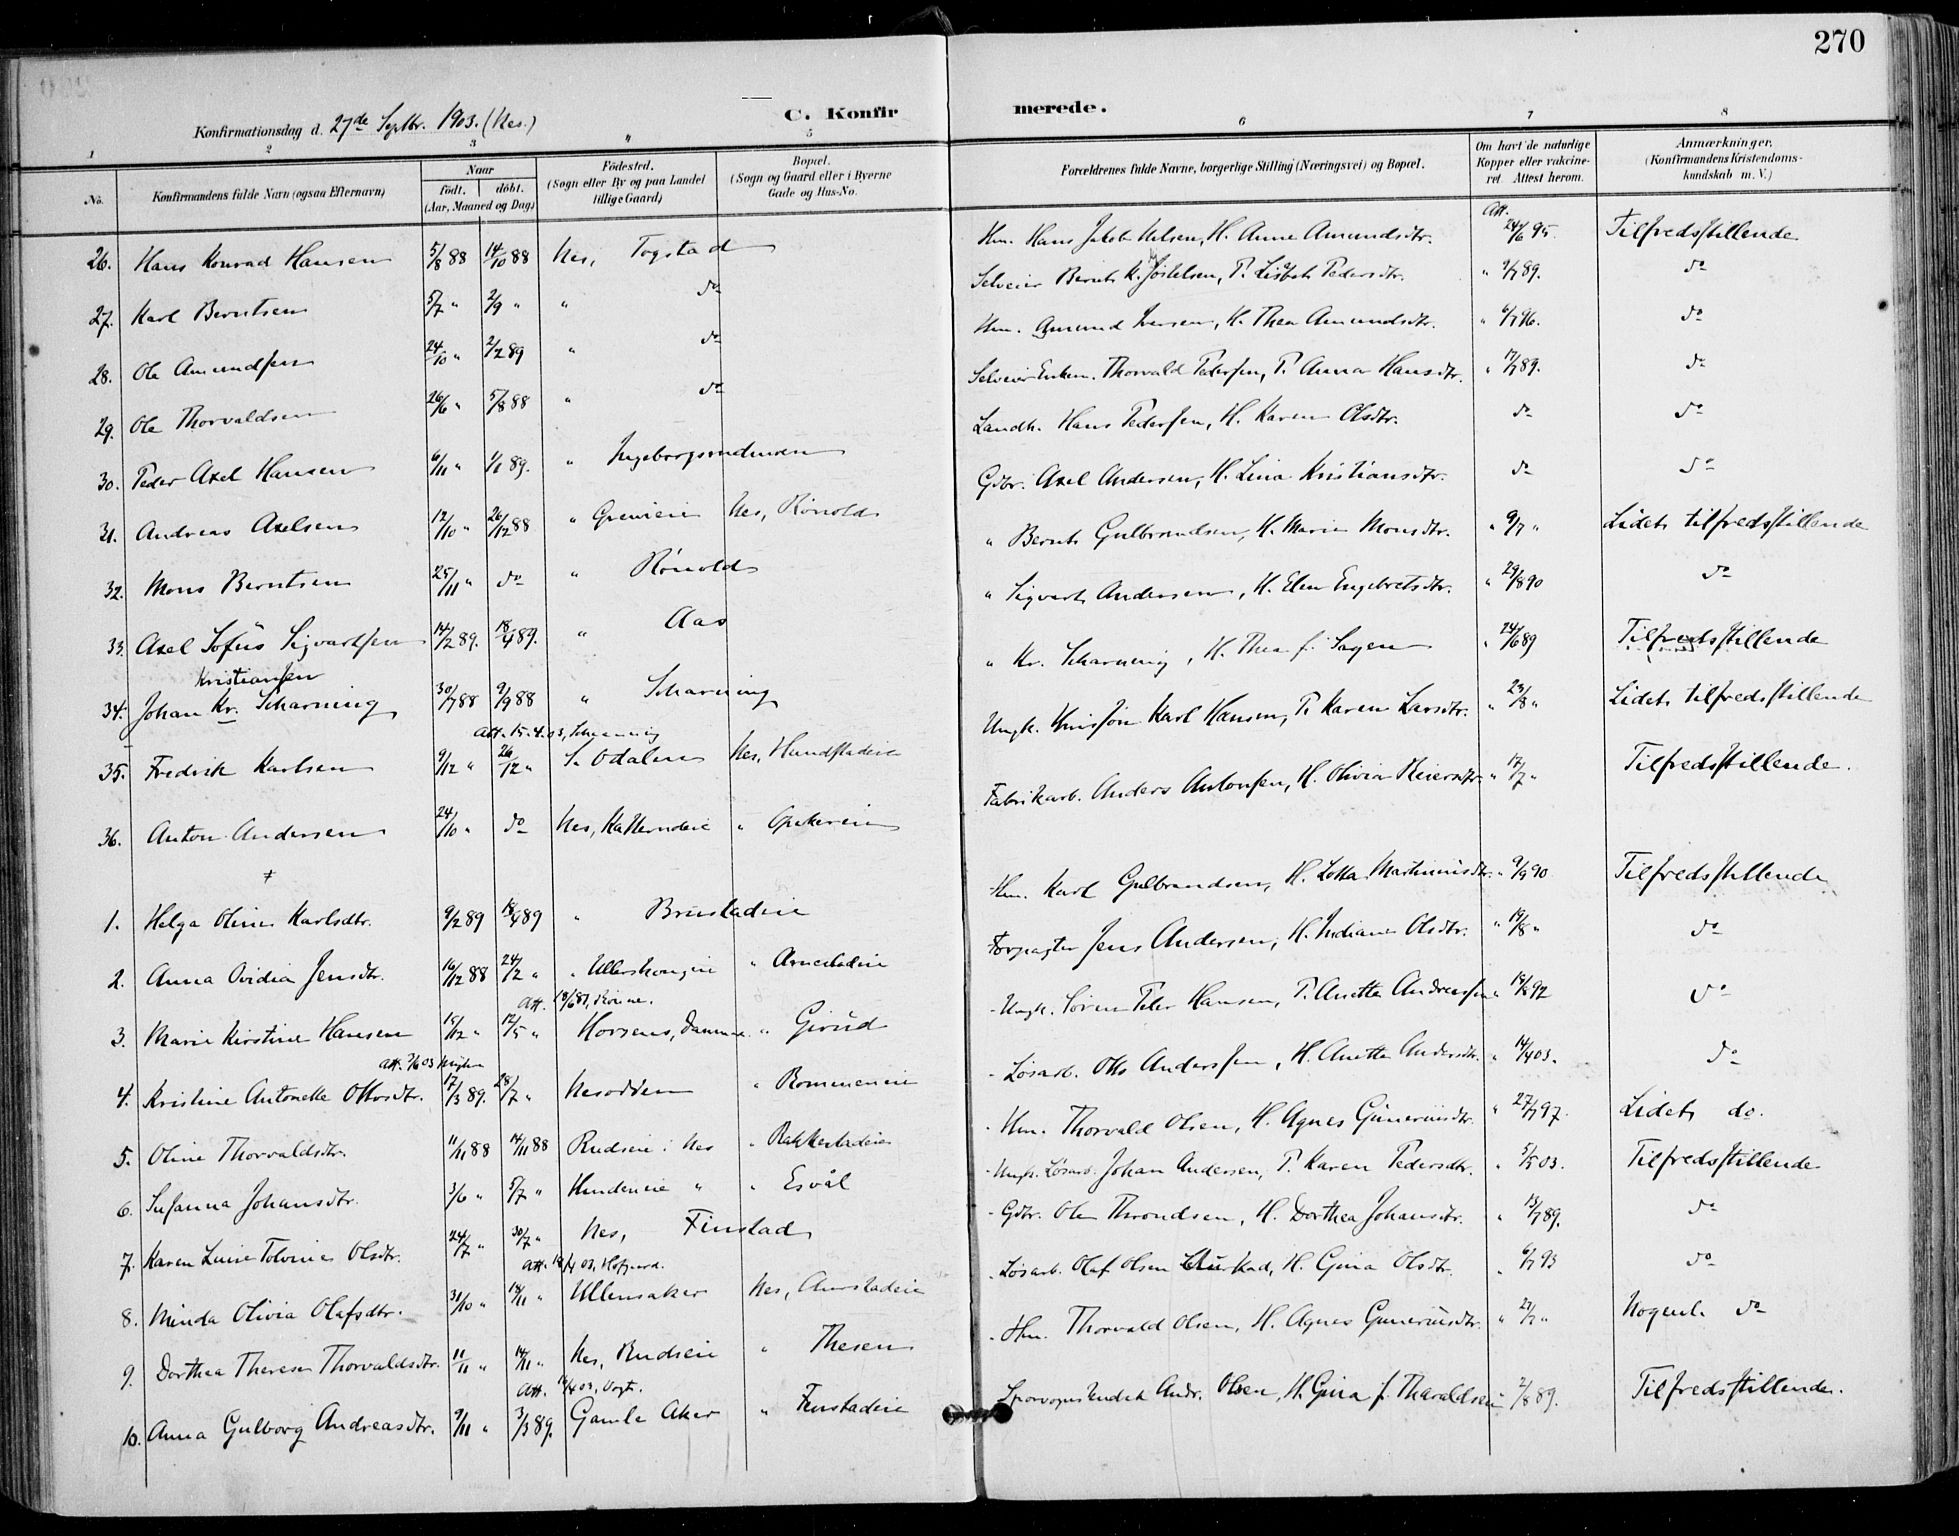 270
Konfirmationsdag d. 27de Septbr. 1903. (Nes.)
C. Konfirmerede.
1 2 3 4 5 6 7 8
No. Konfirmandens fulde Navn (ogsaa Efternavn) Naar født. døbt. (Aar, Maaned og Dag) Fødested. (Sogn eller By og paa Landet tillige Gaard) Bopæl. (Sogn og Gaard eller i Byerne Gade og Hus-No. Forældrenes fulde Navne, borgerlige Stilling (Næringsvei) og Bopæl. Om havt de naturlige Kopper eller vakcineret. Attest herom. Anmærkninger. (Konfirmandens Kristendomskundskab m. V.)
26. Hans Konrad Hansen 5/8 88 14/10 88 Nes, Togstad Hm. Hans Jakob Nilsen, H. Anne Amundsdtr. Att. 24/6 95. Tilfredsstillende
27. Karl Berntsen 5/7 " 2/9 " " do Selveier Bernt K. Jostelsen, P. Lisbet Pedersdtr. " 9/7 89. do
28. Ole Amundsen 24/10 " 2/2 89 " do Hm. Amund Iversen, H. Thea Amundsdtr. " 6/7 96. do
29. Ole Thorvaldsen 26/6 " 5/8 88 " do Selveier Enkem. Thorvald Pedersen, P. Anna Hansdtr. " 17/7 89. do
30. Peder Axel Hansen 6/11 " 1/1 89. " Landh. Hans Pedersen, H. Karen Olsdtr. do do
31. Andreas Axelsen 12/10 " 26/12 88 " Nes, Rønold Gdbr. Axel Andersen, H. Lina Kristiansdtr. do do
32. Mons Berntsen 25/11 " do " Rønold " Bernt Gulbrandsen, H. Marie Monsdtr. " 9/7 " Lidet tilfredsstillende
33. Axel Sofus Sigvartsen 14/2 89. 18/4 89. " Aas " Sigvart Andersen, H. Elen Engebretsdtr. " 29/8 90 do
Kristiansen
34. Johan Kr. Scharning 30/7 88 9/9 88 " Scharning " Kr. Scharning, H. Thea f. Sagen " 24/6 89 Tilfredsstillende
Att. 15-4-03, Schanning
35. Fredrik Karlsen 9/12 " 26/12 " S. Odalen Nes, Hundstadeie Ungk. Karl Hansen, P. Karen Larsdtr. " 23/8 " Lidet tilfredsstillende
36. Anton Andersen 24/10 " do Nes, " Fabrikarb. Anders Antonsen, H. Olivia Reiersdtr. " 17/7 " Tilfredsstillende.
1. Helga Oline Karlsdtr. 9/2 89 18/4 89 " Brustadeie Hm. Karl Gulbrandsen, H. Lotta Martinusdtr. " 9/9 90 Tilfredsstillende
2. Anna Ovidia Jensdtr. 16/12 88 24/2 " " " Aarnestadeie Forpagter Jens Andersen, H. Indiane Olsdtr. " 19/8 " do
3. Marie Kirstine Hansen 15/12 " 12/5 " Horsens, Danm. " Girud Ungk. Søren Peter Hansen, P. Anette Andreasen " 18/8 92 do
4. Kristine Antonette Ottosdtr. 17/3 89. 28/7 " Nesodden " Rommeneie Løsarb. Otto Anderssen, H. Anette Andersdtr. " 14/4 03. do
5. Oline Thorvaldsdtr. 11/11 88 14/11 88 Rudseie i Nes " Rakkestadeie Hm. Thorvald Olsen, H. Agnes Gunerius dtr. " 27/7 97. Lidet do.
6. Susanna Johansdtr. 3/6 " 5/7 " Hundeneie " " Esvål Ungk. Løsarb. Johan Andersen, P. Karen Pedersdtr. " 5/5 03. Tilfredsstillende
7. Karen Luise Tolvine Olsdtr. 24/7 " 30/7 " Nes, Finstad Gdbr. Ole Throndsen, H. Dorthea Johansdtr. " 13/7 89. do
8. Minda Olivia Olafsdtr. 31/10 " 14/11 " Ullensaker Nes, Aurstadeie Løsarb. Olaf Olsen H. Gina Olsdtr. " 6/7 93 do
9. Dorthea Therese Thorvaldsdtr. 11/11 " 14/11 " Nes, Rudseie " Thesen Hm. Thorvald Olsen, H. Agnes Guneriusdtr. " 27/7 " Nogenl. do
Att. 16/4 03, Vogt.
10. Anna Gulborg Andreasdtr. 9/11 " 3/3 89. Gamle Aker " Finstadeie Sporvognskudsk Andr. Olsen, H. Gina f. Tharaldsen 2/8 89. Tilfredsstillende.